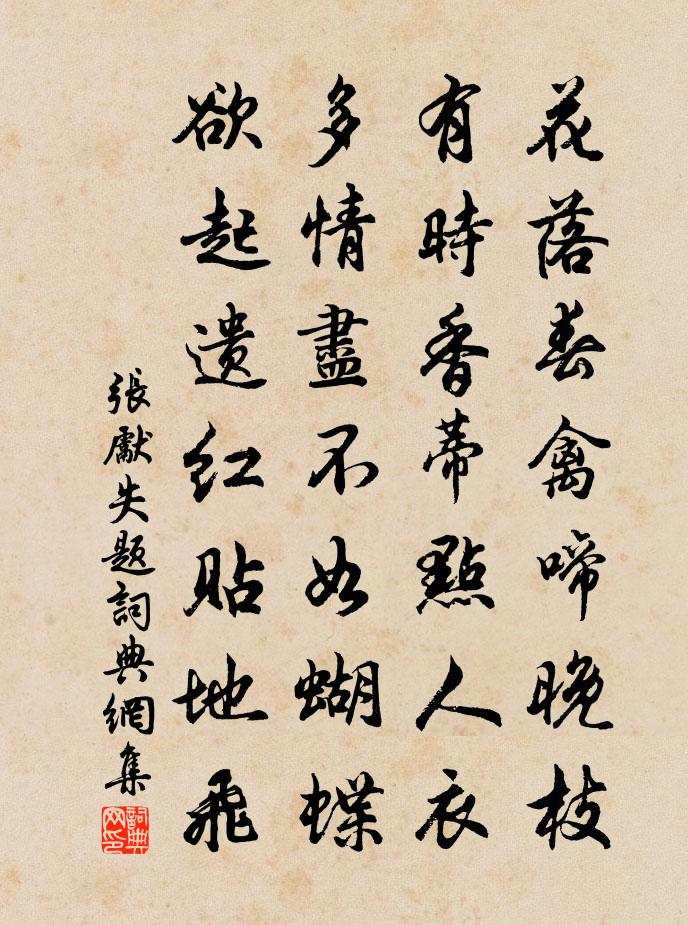 花落春禽啼晚枝
有時香蒂點人衣
多情盡不如蝴蝶
欲起遺红貼地飛
張獻失題詞典網集
詞典網印